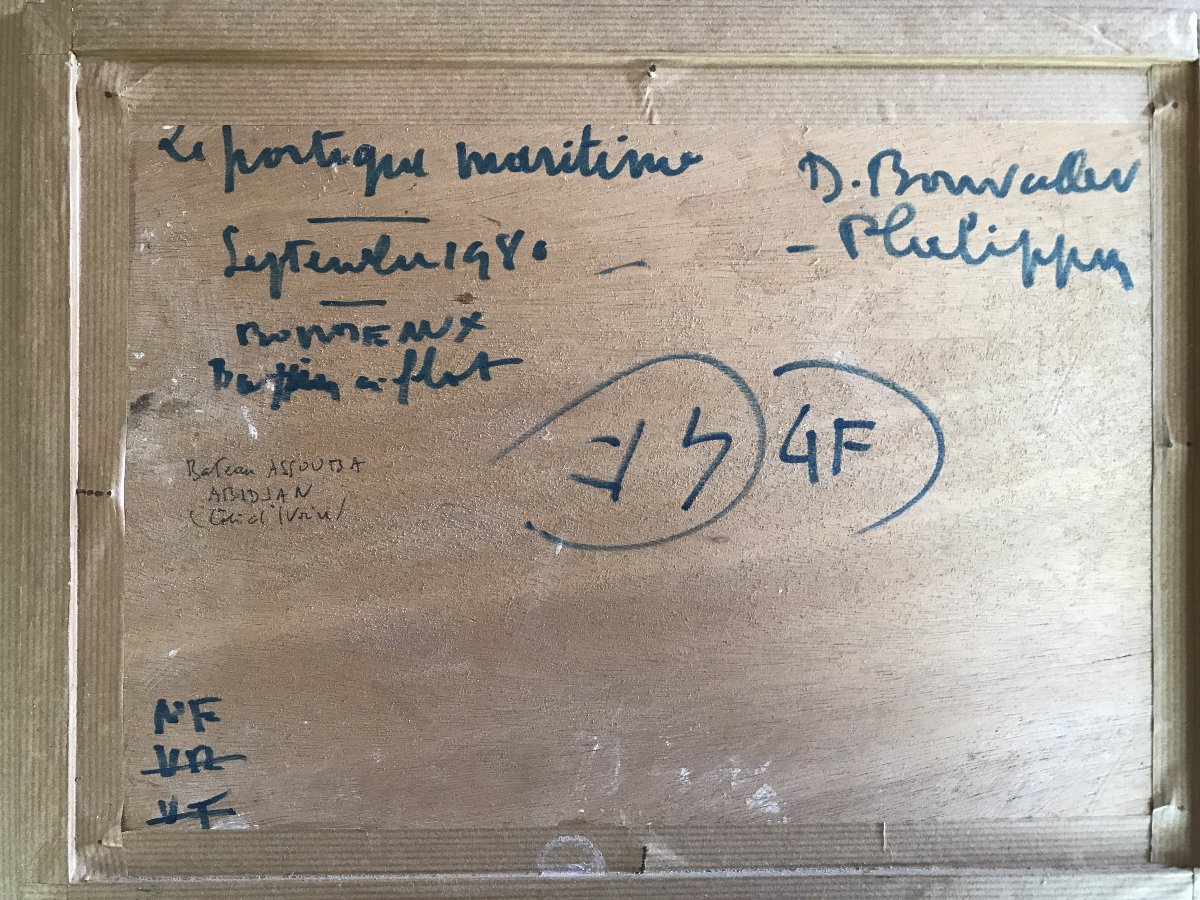 Le portique maritime
Septembre 1980
BORDEAUX
Bassin à flot
D.
- Philippe
4F
Bateau ASSOUBA
ABIDJAN
(Côte d'Ivoire)
NF
VR
VF